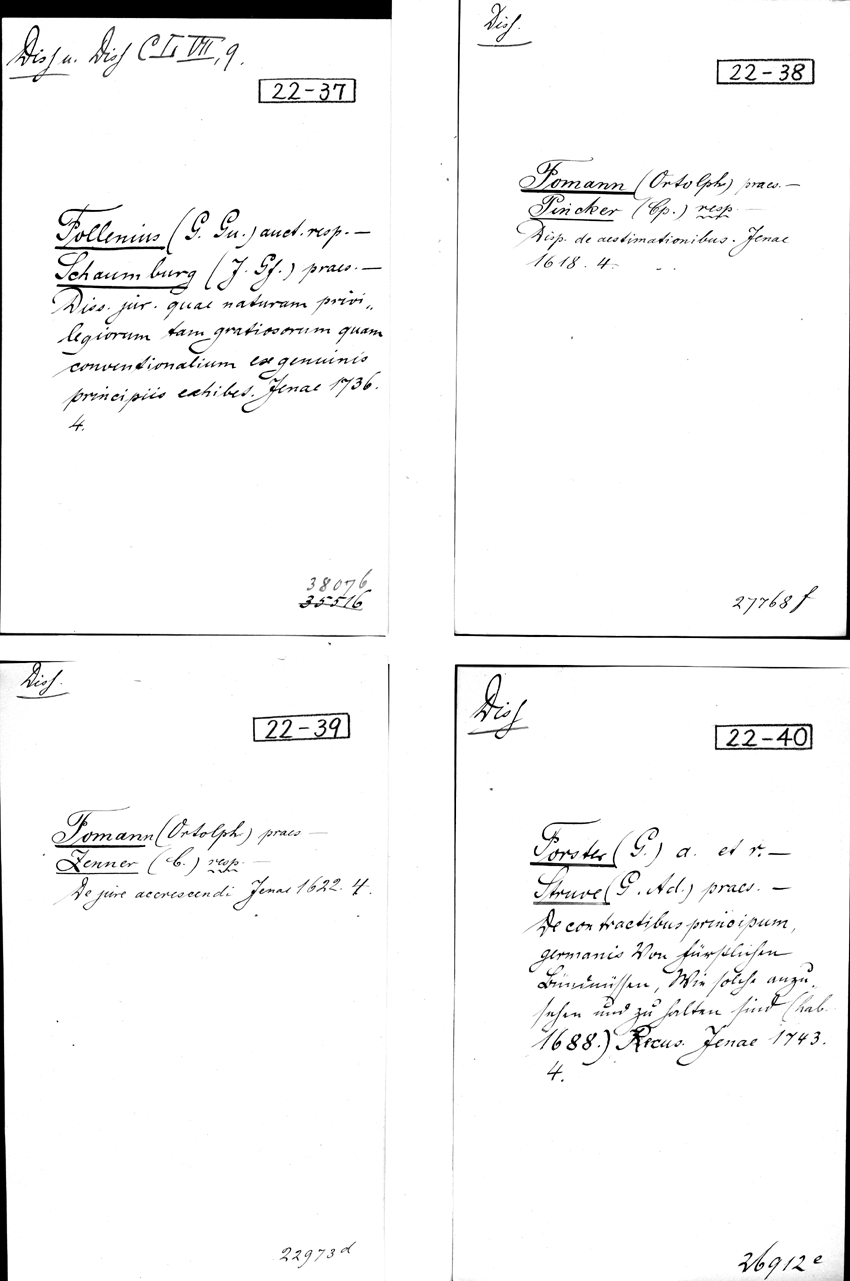 Diss u. Diss C L VII, 9.
22-37
Follenius (G. Gu.) auct. resp. —
Schaumburg (J. Gf.) praes. —
Diss. jur. quae naturam privi„
legiorum tam gratiosorum quam
conventionalium ex genuinis
principiis exhibet. Jenae 1736.
4.
38076
35516
Diss.
22-38
Fomann (Ortolph) praes. —
Pincker (Cp.) resp. —
Disp. de aestimationibus. Jenae
1618. 4.
27768 f
Diss.
22-39
Fomann (Ortolph) praes —
Zenner (C.) resp. —
De jure accrescendi Jenae 1622. 4.
22973 d
Diss
22-40
Forster (G.) a. et r. —
Struve (G. Ad.) praes. —
De contractibus principum,
germanis Von fürstlichen
Bündnüssen, Wie solche anzu„
sehen und zu halten sind (hab.
1688.) Recus. Jenae 1743.
4.
26912 e